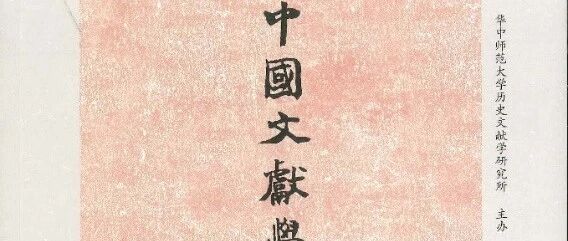 中國文獻學
华中师范大学历史文献学研究所 主办